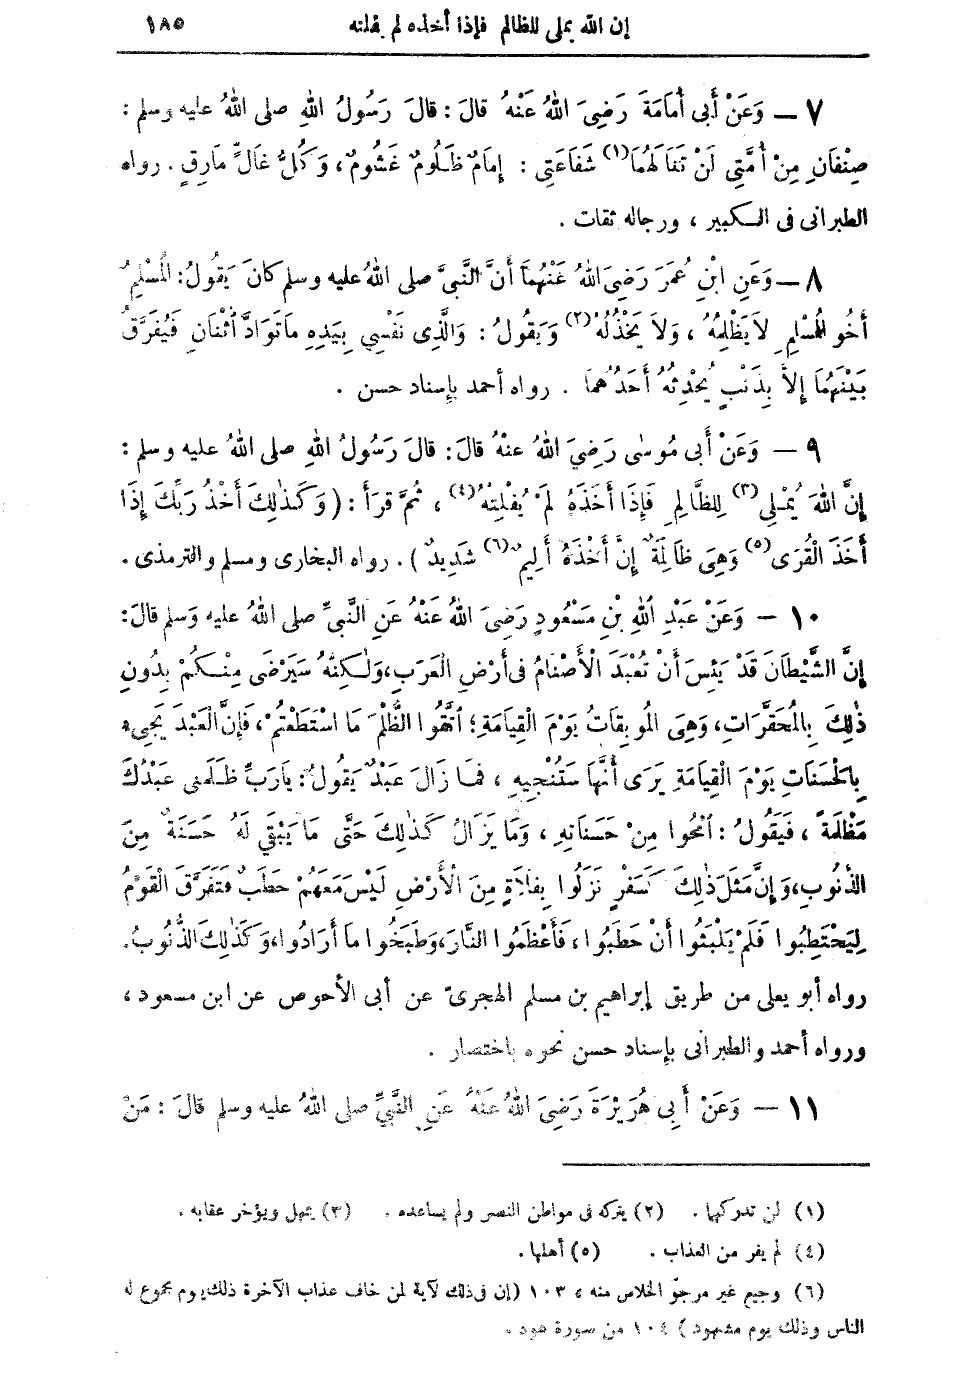 إن الله يملى للظالم فإذا أخذه لم يفلته ١٨٥
٧ – وَعَنْ أَبِى أُمَامَةَ رَضِىَ اللهُ عَنْهُ قالَ: قالَ رَسُولُ اللهِ صلى اللهُ عليه وسلم:
صِنْفَانِ مِنْ أُمَّتِى لَنْ تَنَالَهُمَا(١) شَفَاعَتِى: إِمَامٌ ظَلُومٌ غَشُومٌ، وَكُلُّ غَالٍّ مارِقٍ. رواه
الطبرانى فى الكبير، ورجاله ثقات.
٨ – وَعَنِ ابْنِ عُمَرَ رَضِىَ اللهُ عَنْهُمَا أَنَّ النَّبِىَّ صلى اللهُ عليه وسلم كانَ يَقُولُ: الْمُسْلِمُ
أَخُو الْمُسْلِمِ لاَ يَظْلِمُهُ، وَلاَ يَخْذُلُهُ(٢) وَيَقُولُ: وَالَّذِى نَفْسِي بِيَدِهِ مَا تَوَادَّ اثْنَانِ فَيُفَرَّقُ
بَيْنَهُمَا إِلاَّ بِذَنْبٍ يُحْدِثُهُ أَحَدُهُمَا. رواه أحمد بإسناد حسن.
٩ – وَعَنْ أَبِى مُوسٰى رَضِيَ اللهُ عنْهُ قالَ: قالَ رَسُولُ اللهِ صلى اللهُ عليه وسلم:
إِنَّ اللهَ يُمْلِى(٣) لِلظَّالِمِ فَإِذَا أَخَذَهُ لَمْ يُفْلِتْهُ(٤)، ثُمَّ قرَأَ: (وَكَذٰلِكَ أَخْذُ رَبِّكَ إِذَا
أَخَذَ الْقُرَى(٥) وَهِىَ ظَالِمَةٌ إِنَّ أَخْذَهُ أَلِيمٌ(٦) شَدِيدٌ). رواه البخارى ومسلم والترمذى.
١٠ – وَعَنْ عَبْدِ اللهِ بْنِ مَسْعُودٍ رَضِىَ اللهُ عَنْهُ عَنِ النَّبِىِّ صلى اللهُ عليه وَسلم قالَ:
إِنَّ الشَّيْطَانَ قَدْ يَئِسَ أَنْ تُعْبَدَ الْأَصْنَامُ فى أَرْضِ الْعَرَبِ، وَلٰكِنَّهُ سَيَرْضَى مِنْكُمْ بِدُونِ
ذٰلِكَ بِالْمُحَقَّرَاتِ، وَهِىَ الْمُوبِقَاتُ يَوْمَ الْقِيَامَةِ؛ اتَّقُوا الظُّلْمَ مَا اسْتَطَعْتُمْ، فَإِنَّ الْعَبْدَ يَجِىءُ
بِالْحَسَنَاتِ يَوْمَ الْقِيَامَةِ يَرَى أَنَّهَا سَتُنْجِيهِ، فَمَا زَالَ عَبْدٌ يَقُولُ: يَارَبِّ ظَلَمَنِى عَبْدُكَ
مَظْلَمَةً، فَيَقُولُ: امْحُوا مِنْ حَسَنَاتِهِ، وَمَا يَزَالُ كَذٰلِكَ حَتَّى مَا يَبْقَى لَهُ حَسَنَةٌ مِنَ
الذُّنُوبِ، وَإِنَّ مَثَلَ ذٰلِكَ كَسَفْرٍ نَزَلُوا بِفَلاَةٍ مِنَ الْأَرْضِ لَيْسَ مَعَهُمْ حَطَبٌ فَتَفَرَّقَ الْقَوْمُ
لِيَحْتَطِبُوا فَلَمْ يَلْبَثُوا أَنْ حَطَبُوا، فَأَعْظَمُوا النَّارَ، وَطَبَخُوا ما أَرَادُوا، وَكَذٰلِكَ الذُّنُوبُ.
رواه أبو يعلى من طريق إبراهيم بن مسلم الهجرىّ عن أبى الأحوص عن ابن مسعود،
ورواه أحمد والطبرانى بإسناد حسن نحوه باختصار.
١١ – وَعَنْ أَبِى هُرَيْرَةَ رَضِىَ اللهُ عَنْهُ عَنِ النَّبِيِّ صلى اللهُ عليه وسلم قالَ: مَنْ
(١) لن تدركها. (٢) يتركه فى مواطن النصر ولم يساعده. (٣) يمهل ويؤخر عقابه.
(٤) لم يفر من العذاب. (٥) أهلها.
(٦) وجيع غير مرجوّ الخلاص منه، ١٠٣ (إن فى ذلك لآية لمن خاف عذاب الآخرة ذلك يوم مجموع له
الناس وذلك يوم مشهود) ١٠٤ من سورة هود.